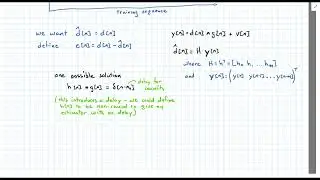 training sequence
we want d̂[n] = d[n]
define e[n] = d[n] - d̂[n]
y[n] = d[n] * g[n] + v[n]
d̂[n] = H y[n]
where H = hᵀ = [h₀ h₁ ... hₘ]
and y[n] = (y[n] y[n-1] ... y[n-m])ᵀ
one possible solution
h[n] * g[n] = δ[n-n₀]
delay for
causality
(this introduces a delay - we could define
h[n] to be non-causal to give an
estimator with no delay)